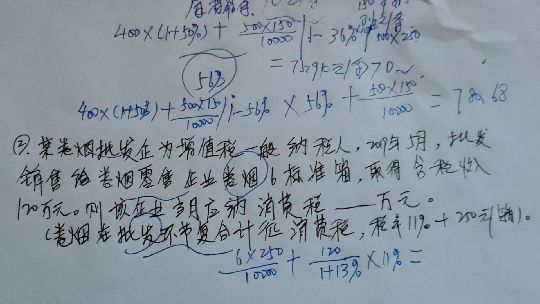 400×(1+50%) + 500×150/10000 / 1-36%
= 7529.K元/箱 > 70~
56%
400×(1+50%) + 500×150/10000 / 1-56% × 56% + 500×150/10000 = 780.68
②. 某卷烟批发企业为增值税一般纳税人，2019年5月，批发
销售给卷烟零售企业卷烟6标准箱，取得含税收入
120万元。则该企业当月应纳消费税 —— 万元。
（卷烟在批发环节复合计征消费税，税率11% + 250元/箱）。
6×250/10000 + 120/1+13% × 11% =